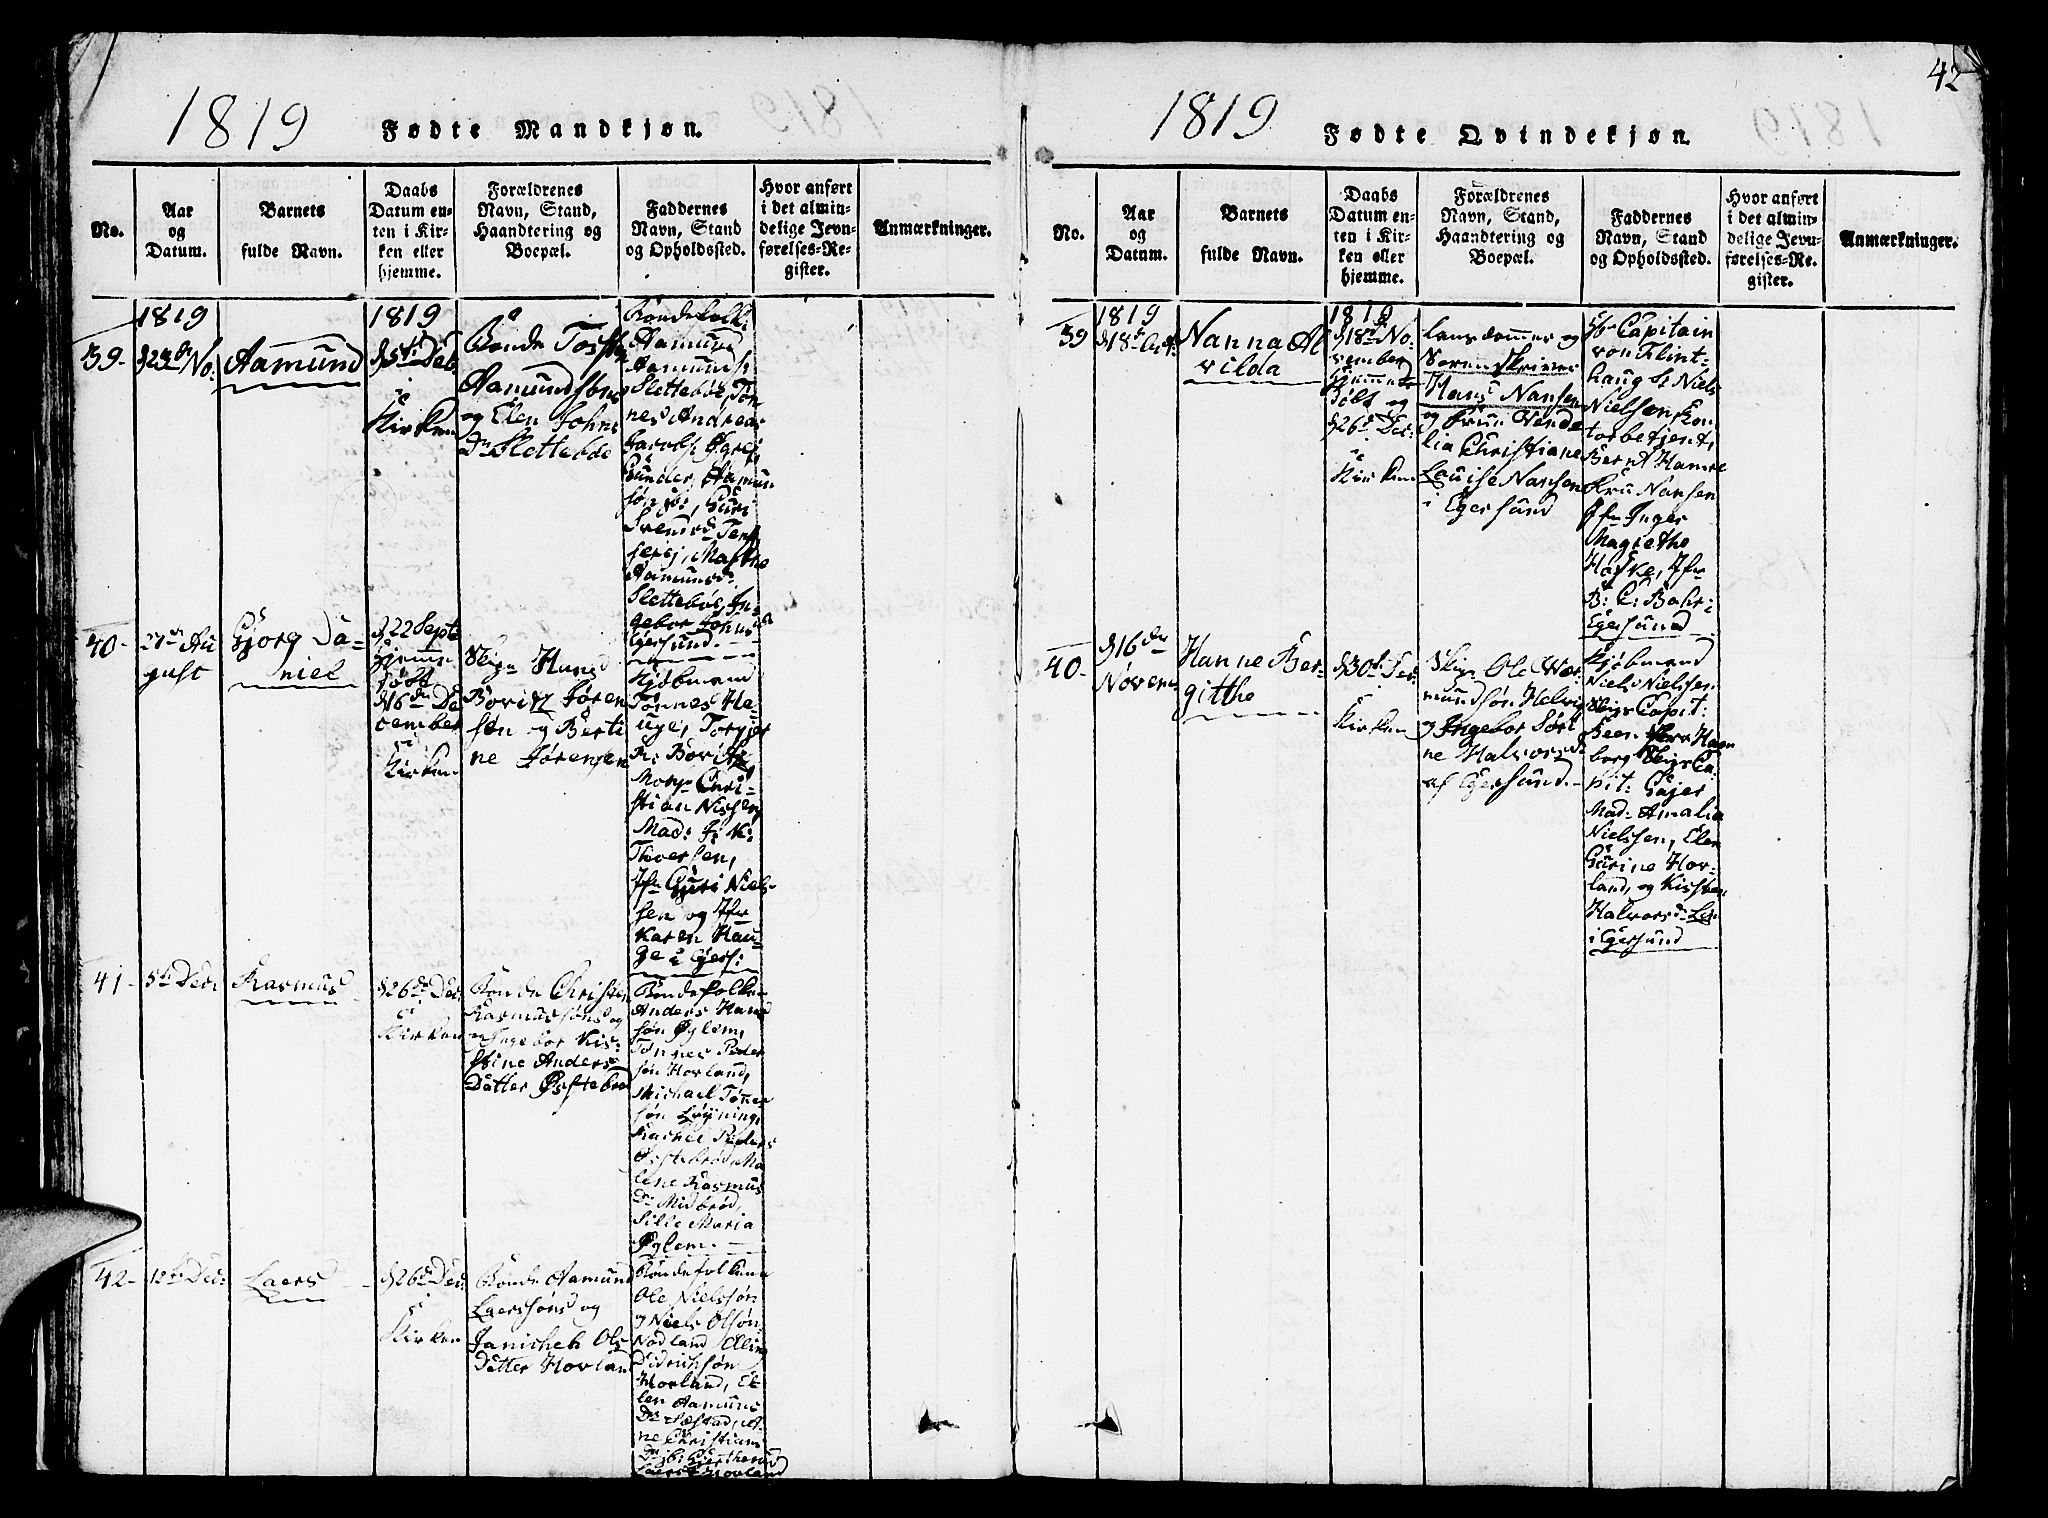 42
1819 Fødte Mandkjøn.
No.
Aar
og
Datum.
Barnets
fulde Navn.
Daabs
Datum en-
ten i Kir-
ken eller
hjemme.
Forældrenes
Navn, Stand,
Haandtering og
Boepæl.
Faddernes
Navn, Stand
og Opholdssted.
Hvor anført
i det almin-
delige Jevn-
førelses-Re-
gister.
Anmærkninger.
39-
1819
d 23de No:
Aamund
1819
d 5te Dec:
i
Kirken
Bonde
Aamundsøns
og Elen Johns
Dr Slettebøe
Bondefolk:
Aamund
Aamunds:
Slettebøe, Tøn
nes Andreas
Jacobs:
Gunder Aamun
søn ib:, Guri
Svends Dr
Marthe
Aamunds Dr
Slettebøe, In-
gebor Johnsd
Egersund.
40-
27de Au
gust
Gjorg Da-
niel
d 22 Septe
hjemme
døbt
d 16de De
cember
i
Kirken
Hans
Boritz Jøren
sen og Berti
ne Jørensen
Kjøbmænd
Tønnes He-
uge, Torgjer
R: Boritz
Monsr Chri-
stian Nissen
Mad: J: K:
Thorsen,
Jfr Guri Niel-
sen og Jfr
Karen Hau-
ge i Egers:
41-
5te Dec:
Rasmus
d 26de Dec:
i
Kirken
Bonde Christen
Rasmussøns og
Ingebor Kis:
stine Anders
Datter Østebrø
Bondefolken
Anders Hans
søn Øglem,
Tønnes Peder
søn Hovland,
Michael Tønne
søn Løyning,
Rachel Peders
Østebrød, Ma
lene Rasmus
Dr Midbrød,
Sille Maria
Øglem.
42-
12te Dec:
Laers
d 26de Dec:
i
Kirken
Bonde Aamund
Laerssøns og
Janicheh Ols
Datter Hovland
Bondefolkene
Ole Nielssøn
og Niels Olsøn
Nodland, Elling
Didrichsøn
Hovland, El-
len Aamuns
Dr Sæstad, A-
ne Christians
Dr ib:
Laers Dr Hovland
1819 Fødte Qvindekjøn.
No.
Aar
og
Datum.
Barnets
fulde Navn.
Daabs
Datum en-
ten i Kir-
ken eller
hjemme.
Forældrenes
Navn, Stand,
Haandtering og
Boepæl.
Faddernes
Navn, Stand
og Opholdssted.
Hvor anført
i det almin-
delige Jevn-
førelses-Re-
gister.
Anmærkninger.
39
1819
d 18de
Nanna Al
vilda
1819
d 18de No-
vember
hjemme
døbt og
d 26de Dec:
i
Kirken
Lansdommer og
Sorenskriver
Hans Nansen
og Fruu Vende
lia Christiane
Louise Nansen
i Egersund
Capitain
von Flint-
haug Sr Niels
Nielsen, Kon
torbetjent,
Bernt Hamre
Fru Nansen
Jfr Inger
Magrethe
Jfr
B: C: Bahr i
Egersund
40-
d 16de
Novem
Hanne Ber-
gitthe
d 30te Dec:
i
Kirken
Skipr Ole Wær
mundsøn Helvig
og Ingebor Søri
ne Halvorsd
af Egersund.
Kjøbmænd
Niels Nielssen
Skipr Capit:
berg Skips Ca-
pit: Gajer
Mad: Amalia
Nielssen, Elen
Gurine Hov-
land, og Kissten
Halvorsdr
i Egersund